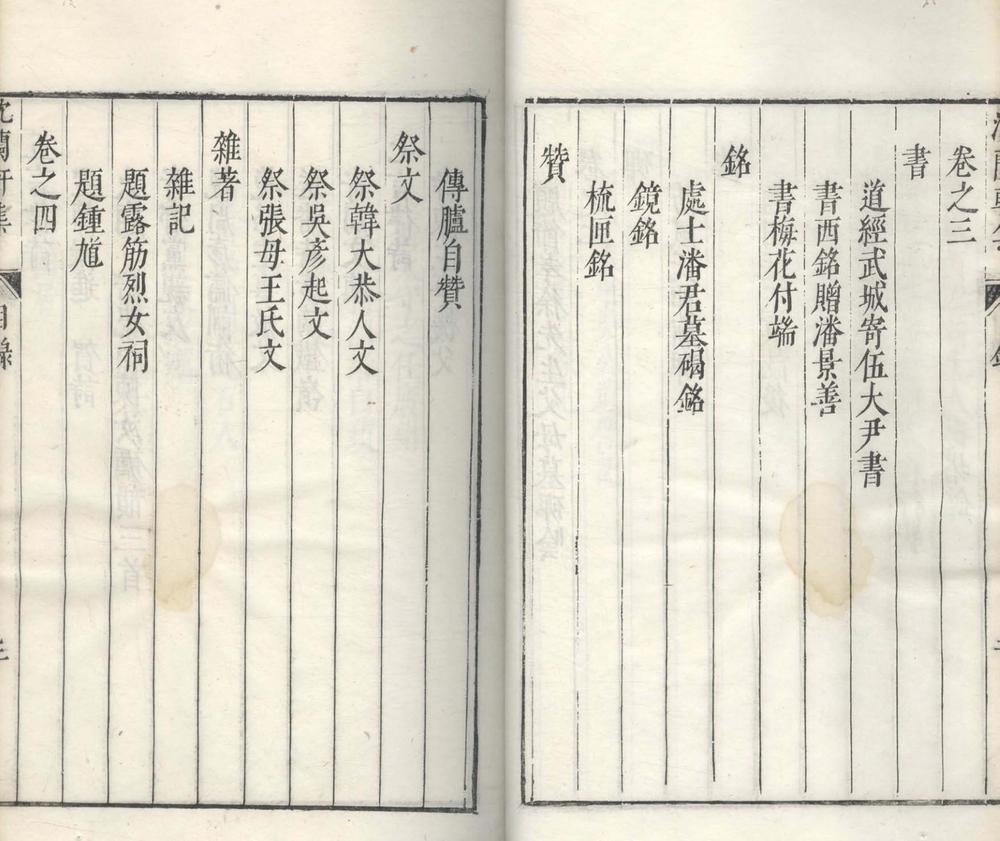 卷之三
書
道經武城寄伍大尹書
書西銘贈潘景善
書梅花付端
銘
處士潘君墓碣銘
鏡銘
梳匣銘
贊
傳臚自贊
祭文
祭韓大恭人文
祭吳彥起文
祭張母王氏文
雜著
雜記
題露筋烈女祠
題鍾馗
卷之四
蘭軒集
目錄